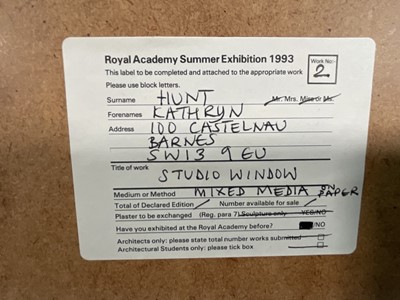 Royal Academy Summer Exhibition 1993
Work No:-
2
This label to be completed and attached to the appropriate work
Please use block letters.
Surname HUNT Mr. Mrs. Miss or Ms.
Forenames KATHRYN
Address 100 CASTELNAU
BARNES
SW13 9EU
Title of work STUDIO WINDOW
Medium or Method MIXED MEDIA ON PAPER
Total of Declared Edition Number available for sale
Plaster to be exchanged (Reg. para 7) Sculpture only YES/NO
Have you exhibited at the Royal Academy before? /NO
Architects only: please state total number works submitted
Architectural Students only: please tick box